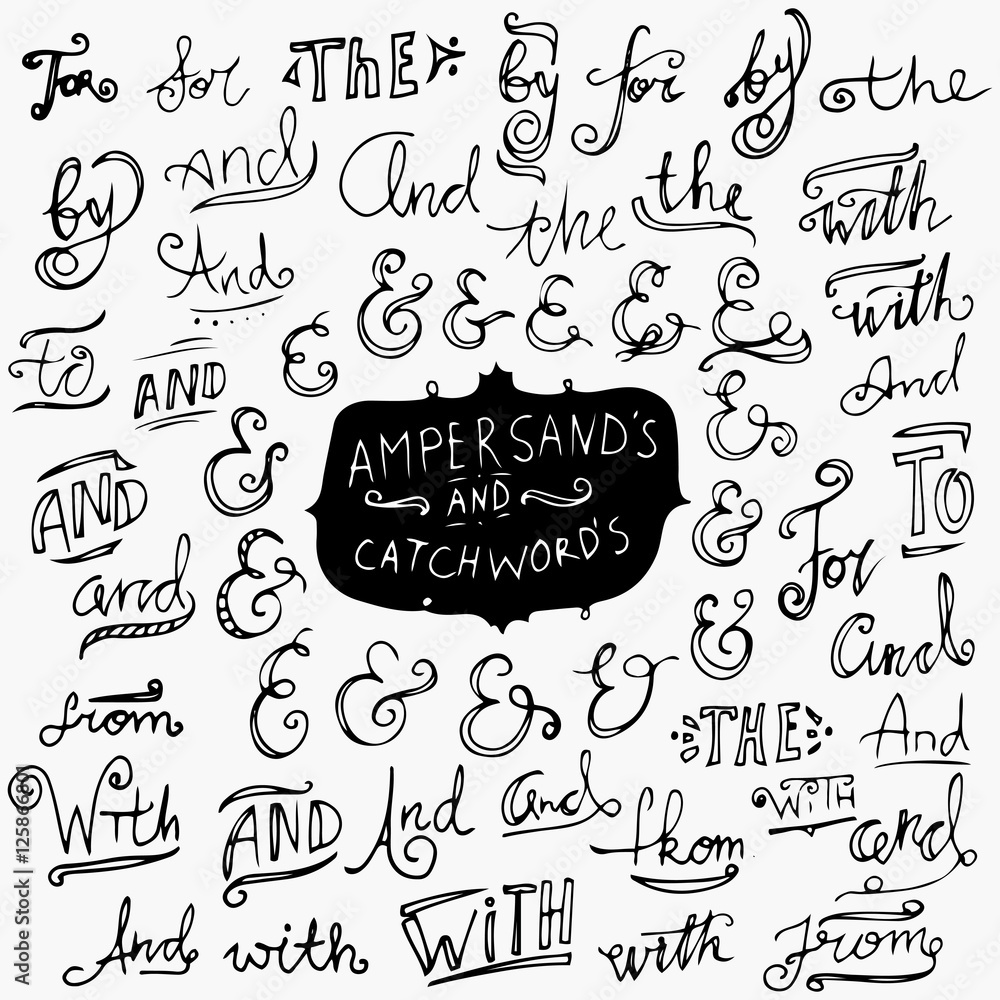 For for THE by for by the
by and And the the with
And & & & & & with
to AND & And
& &
AMPERSAND'S
AND
CATCHWORD'S
AND & For TO
and & & and
from & & & & THE And
With AND And and from WiTH and
And with WiTH with From
Adobe Stock | #125866801